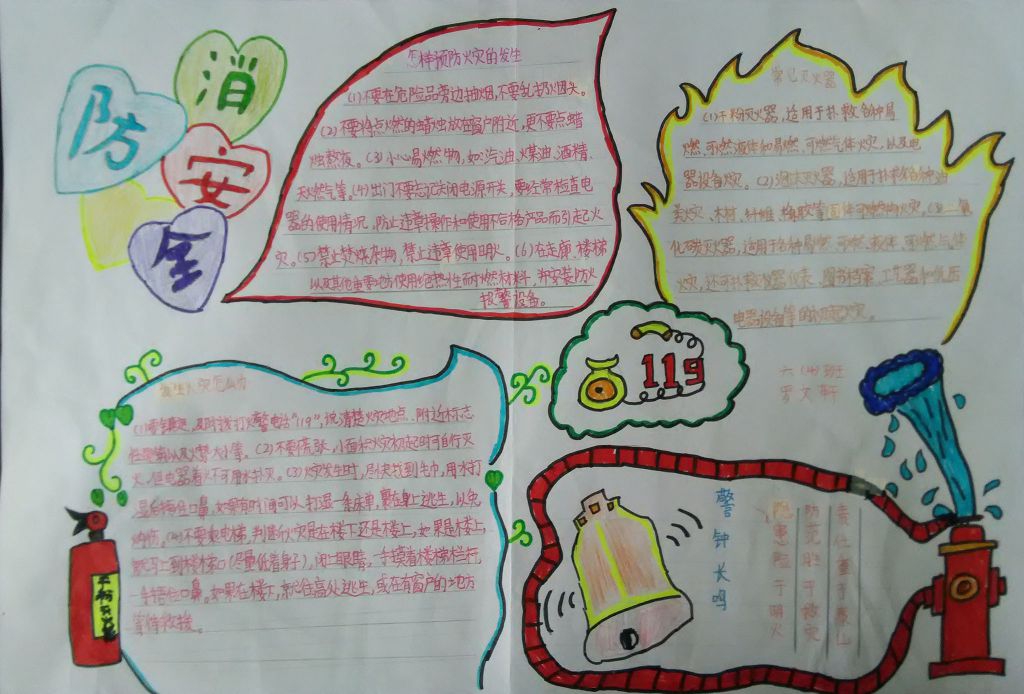 消
防
安
全
怎样预防火灾的发生
(1)不要在危险品旁边抽烟,不要乱扔烟头。
(2)不要将点燃的蜡烛放在窗户附近,更不要点蜡
烛熬夜。(3)小心易燃物,如:汽油、煤油、酒精、
天然气等。(4)出门不要忘记关闭电源开关,要经常检查电
器的使用情况,防止违章操作和使用不合格产品而引起火
灾。(5)禁止焚烧杂物,禁止违章使用明火。(6)在走廊、楼梯
以及其他重要地方使用绝热性而耐燃材料,并安装防火
报警设备。
常见灭火器
(1)干粉灭火器,适用于扑救各种易
燃、可燃液体和易燃、可燃气体火灾,以及电
器设备火灾。(2)泡沫灭火器,适用于扑救各种油
类火灾、木材、纤维、橡胶等固体可燃物火灾。(3)二氧
化碳灭火器,适用于各种易燃、可燃液体、可燃气体
火灾,还可扑救仪器仪表、图书档案、工艺器和低压
电器设备等的初起火灾。
119
六(4)班
罗文轩
发生火灾怎么办
(1)要镇定,及时拨打火警电话"119",说清楚火灾地点、附近标志
性建筑以及火势大小等。(2)不要慌张,小面积火灾初起时可自行灭
火,但电器着火不可用水扑灭。(3)火灾发生时,尽快找到毛巾,用水打
湿后捂住口鼻,如果有时间可以打湿一条床单,裹在身上逃生,以免
灼伤。(4)不要乘电梯,判断火灾是在楼下还是楼上,如果是楼上
就弯上到楼梯口(尽量低着身子),闭上眼睛,一手摸着楼梯栏杆,
一手捂住口鼻。如果在楼下,就往高处逃生,或在有窗户的地方
等待救援。
干粉灭火器
警钟长鸣
责任重于泰山
防范胜于救灾
隐患险于明火